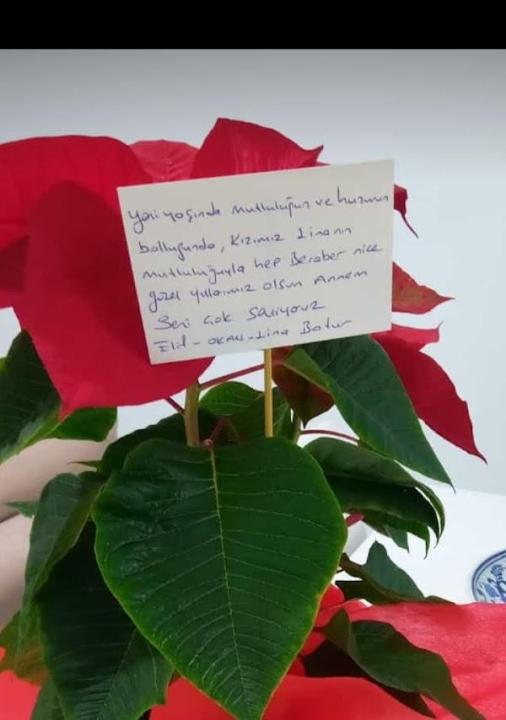 Yeni yaşında mutluluğun ve huzurun
bolluğunda, Kızımız Linanın
mutluluğuyla hep Beraber nice
güzel yıllarımız olsun Annem
Seni çok Seviyoruz
Elif - okan - Lina Batur